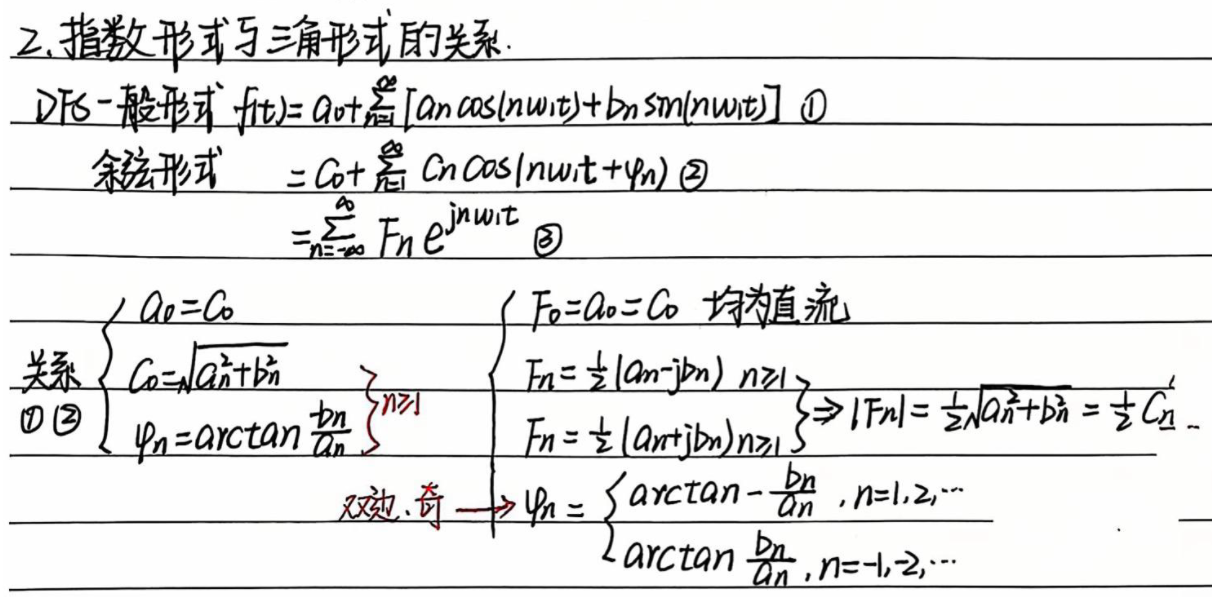 2.指数形式与三角形式的关系.
DFS一般形式 f(t)=a₀+∑_{n=1}^{∞}[aₙcos(nω₁t)+bₙsin(nω₁t)] ①
余弦形式 =C₀+∑_{n=1}^{∞} Cₙcos(nω₁t+φₙ) ②
=∑_{n=-∞}^{∞} Fₙe^{jnω₁t} ③
关系 ①②
a₀=C₀
C₀=√(aₙ²+bₙ²)
φₙ=arctan -bₙ/aₙ
n≥1
F₀=a₀=C₀ 均为直流
Fₙ=½(aₙ-jbₙ) n≥1
Fₙ=½(aₙ+jbₙ) n≥1
⇒|Fₙ|=½√(aₙ²+bₙ²)=½Cₙ
双边、奇→φₙ=
arctan-bₙ/aₙ ,n=1,2,…
arctan bₙ/aₙ ,n=-1,-2,…